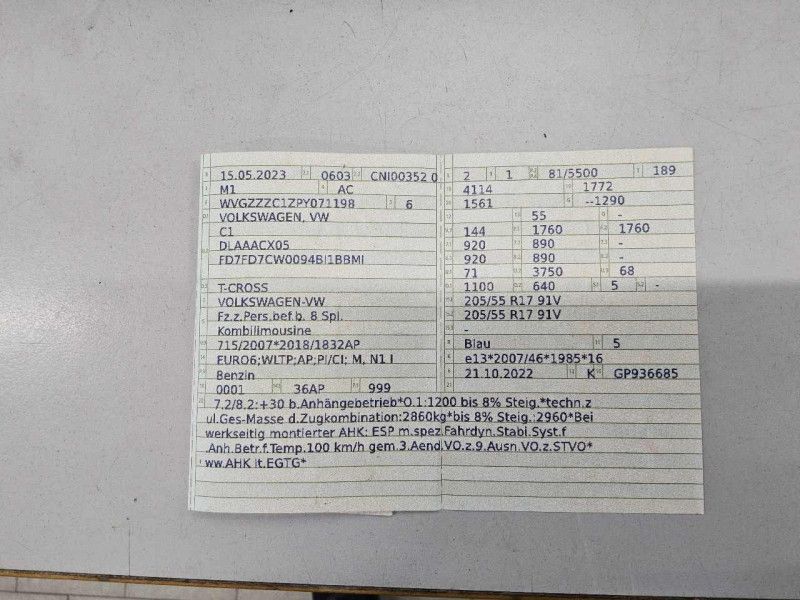 15.05.2023 0603 CNI00352 0
M1 AC
WVGZZZC1ZPY071198 6
VOLKSWAGEN, VW
C1
DLAAACX05
FD7FD7CW0094BI1BBMI
T-CROSS
VOLKSWAGEN-VW
Fz.z.Pers.bef.b. 8 Spl.
Kombilimousine
715/2007*2018/1832AP
EURO6;WLTP;AP;PI/CI; M, N1 I
Benzin
0001 36AP 999
2 1 81/5500 189
4114 1772
1561 --1290
55 -
144 1760 1760
920 890 -
920 890 -
71 3750 68
1100 640 5 -
205/55 R17 91V
205/55 R17 91V
-
Blau 5
e13*2007/46*1985*16
21.10.2022 K GP936685
7.2/8.2:+30 b.Anhängebetrieb*O.1:1200 bis 8% Steig.*techn.z
ul.Ges-Masse d.Zugkombination:2860kg*bis 8% Steig.:2960*Bei
werkseitig montierter AHK: ESP m.spez.Fahrdyn.Stabi.Syst.f
.Anh.Betr.f.Temp.100 km/h gem.3.Aend.VO.z.9.Ausn.VO.z.STVO*
ww.AHK lt.EGTG*